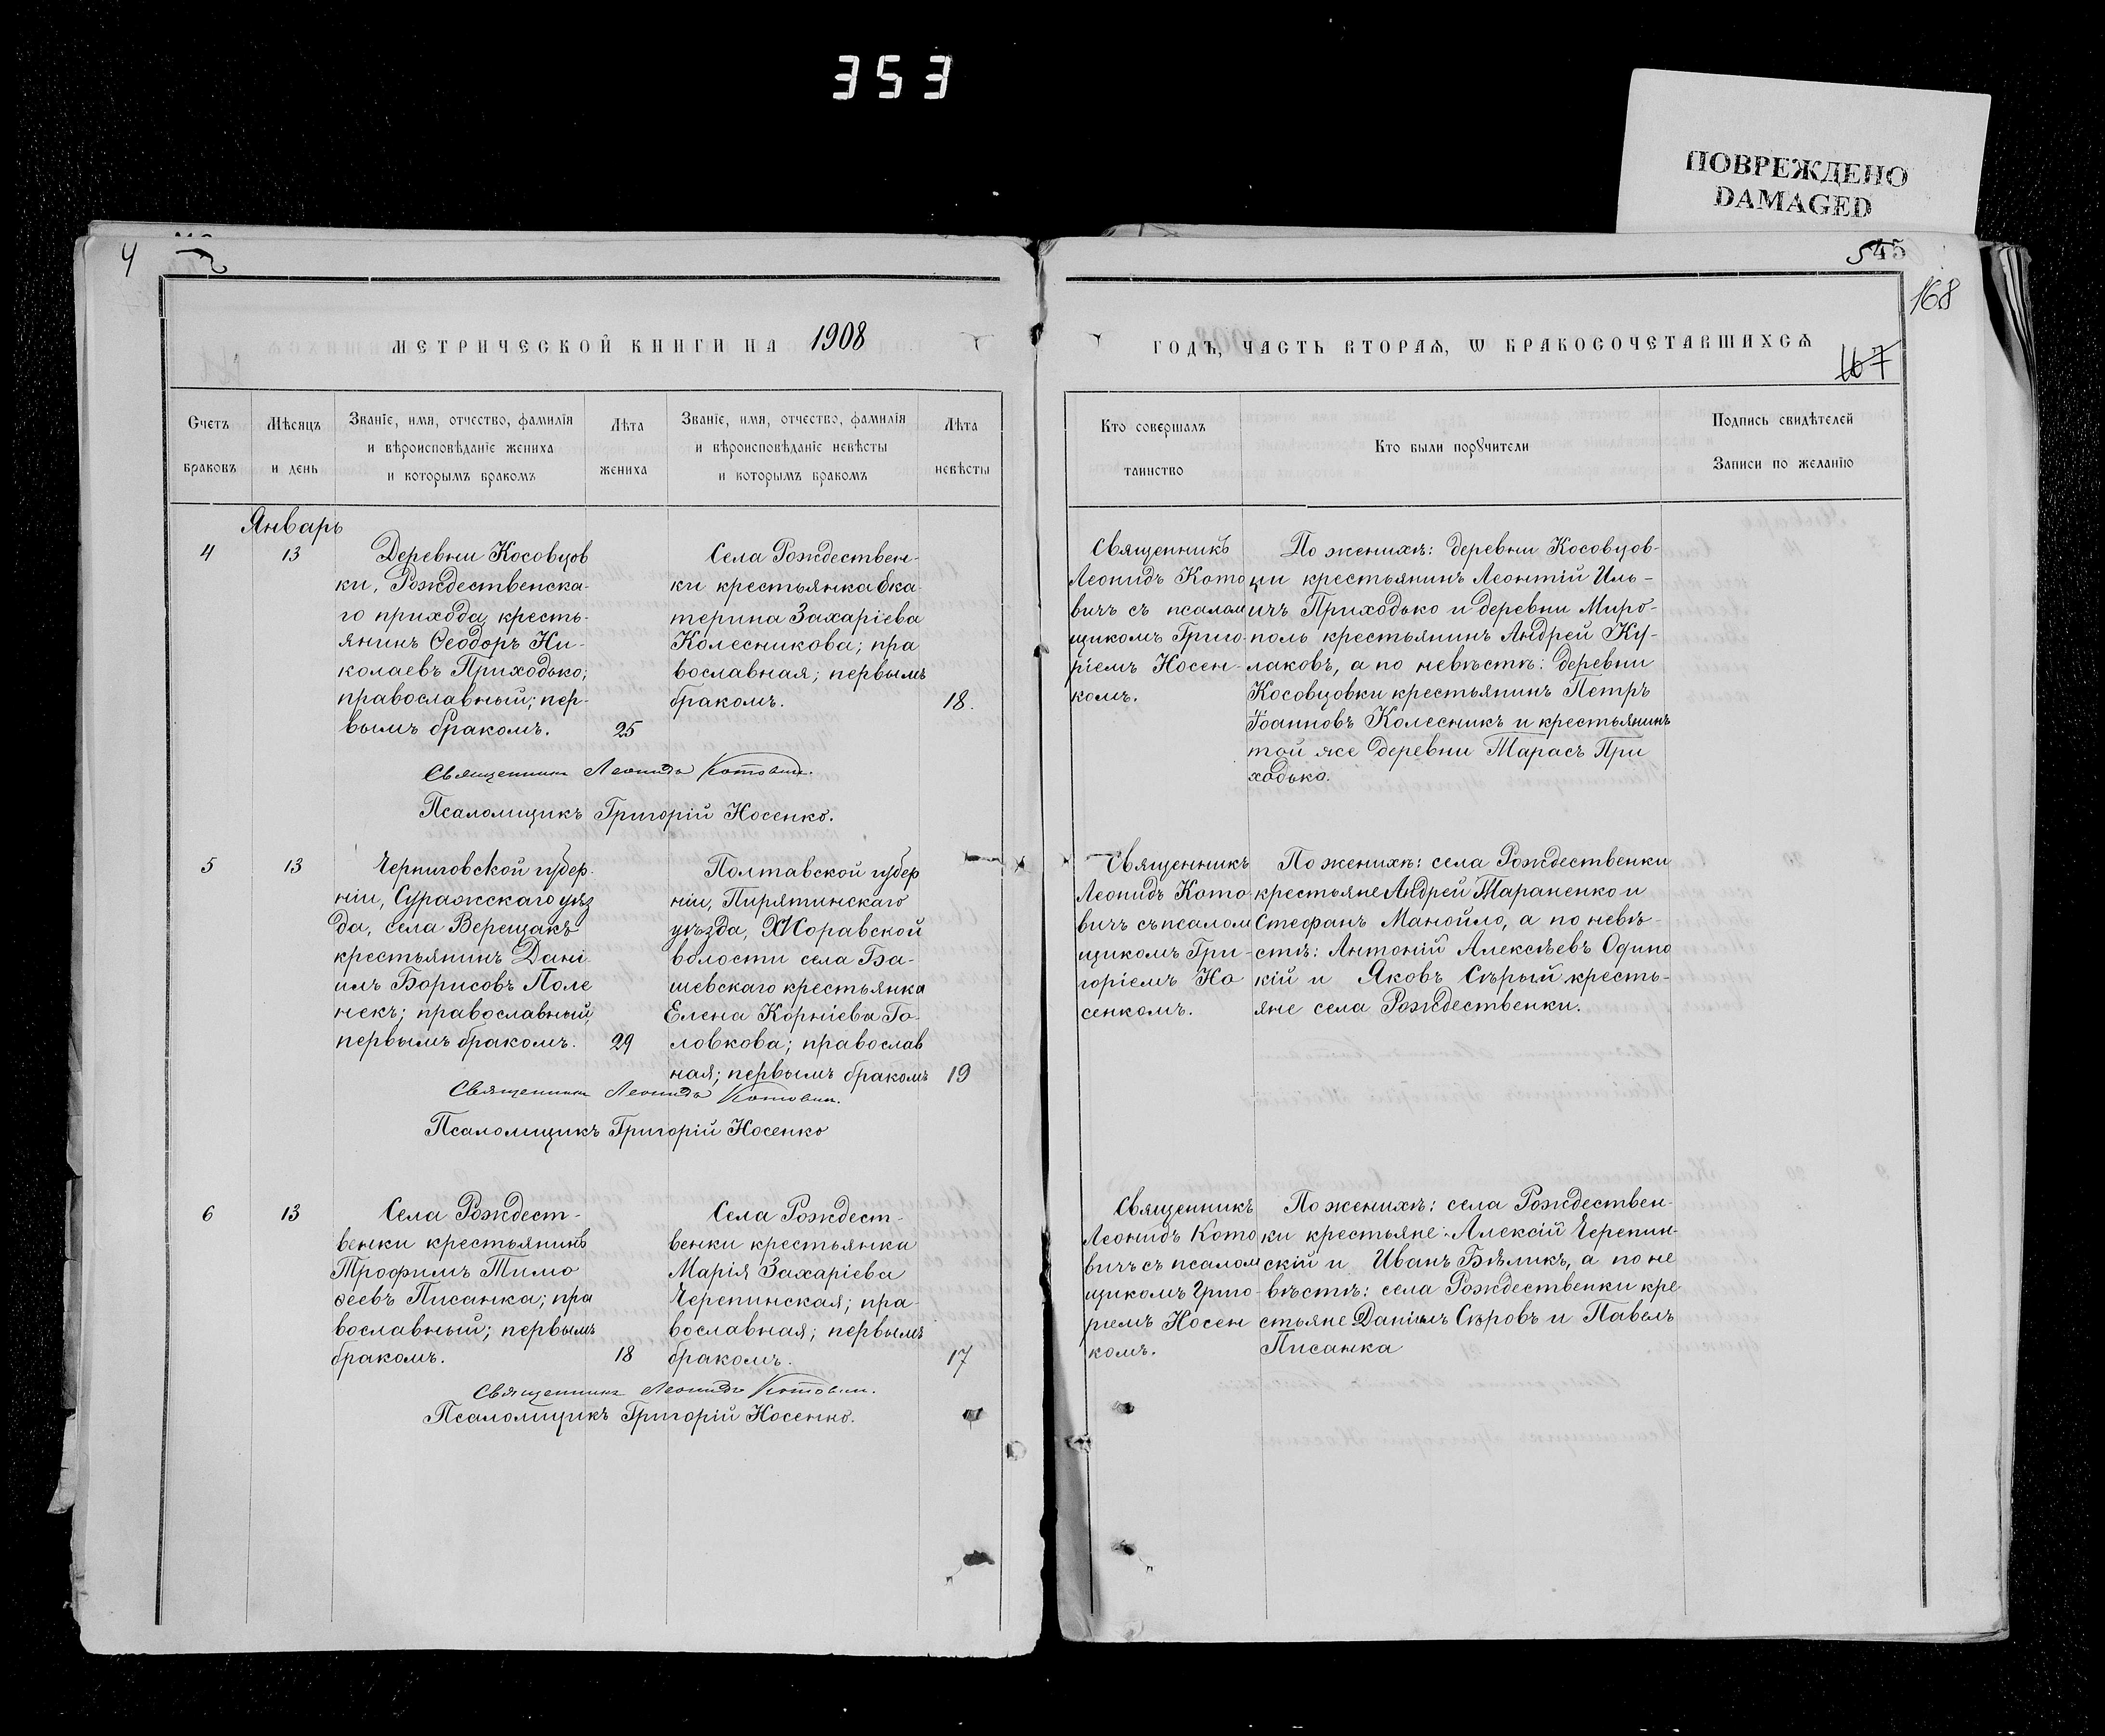 353
ПОВРЕЖДЕНО
DAMAGED
4
545
168
МЕТРИЧЕСКОЙ КНИГИ НА 1908
ГОДЪ, ЧАСТЬ ВТОРАѦ, Ѡ БРАКОСОЧЕТАВШИХСѦ
167
Счетъ
браковъ
Мѣсяцъ
и день
Званіе, имя, отчество, фамилія
и вѣроисповѣданіе жениха
и которымъ бракомъ
Лѣта
жениха
Званіе, имя, отчество, фамилія
и вѣроисповѣданіе невѣсты
и которымъ бракомъ
Лѣта
невѣсты
Кто совершалъ
таинство
Кто были порꙋчители
Подпись свидѣтелей
Записи по желанію
Январь
4
13
Деревни Косовцов
ки, Рождественска-
го прихода, кресть-
янинъ Ѳеодоръ Ни-
колаевъ Приходько;
православный; пер-
вымъ бракомъ.
25
Села Рождествен-
ки крестьянка Ека-
терина Захаріева
Колесникова; пра
вославная; первымъ
бракомъ.
18.
Священникъ
Леонидъ Кото
вичъ съ псалом
щикомъ Григо-
ріемъ Носен-
комъ.
По женихѣ: деревни Косовцов-
ци крестьянинъ Леонтій Иль-
ичъ Приходько и деревни Миро-
поль крестьянинъ Андрей Ку-
лаковъ, а по невѣстѣ: деревни
Косовцовки крестьянинъ Петръ
Іоанновъ Колесникъ и крестьянинъ
той же деревни Тарасъ При
ходько.
Священникъ Леонидъ Котовичъ.
Псаломщикъ Григорій Носенко.
5
13
Черниговской губер-
ніи, Суражскаго уѣз
да, села Верещакъ
крестьянинъ Дані-
илъ Борисовъ Поле
некъ; православный,
первымъ бракомъ.
29
Полтавской губер
ніи, Пирятинскаго
уѣзда, Жоравской
волости села Ба-
шевскаго крестьянка
Елена Корніева Го-
ловкова; православ
ная; первымъ бракомъ
19
Священникъ
Леонидъ Кото
вичъ съ псалом
щикомъ Гри-
горіемъ Но
сенкомъ.
По женихѣ: села Рождественки
крестьяне Андрей Тараненко и
Стефанъ Манойло, а по невѣ-
стѣ: Антоній Алексѣевъ Одино
кій и Яковъ Сѣрый кресть-
яне села Рождественки.
Священникъ Леонидъ Котовичъ.
Псаломщикъ Григорій Носенко
6
13
Села Рождест-
венки крестьянинъ
Трофимъ Тимо
ѳеевъ Писанка; пра
вославный; первымъ
бракомъ.
18
Села Рождест-
венки крестьянка
Марія Захаріева
Черепинская; пра-
вославная; первымъ
бракомъ.
17
Священникъ
Леонидъ Кото
вичъ съ псалом
щикомъ Григо-
ріемъ Носен
комъ.
По женихѣ: села Рождествен-
ки крестьяне: Алексій Черепин-
скій и Иванъ Бѣликъ, а по не
вѣстѣ: села Рождественки кре
стьяне Даніилъ Сѣровъ и Павелъ
Писанка
Священникъ Леонидъ Котовичъ.
Псаломщикъ Григорій Носенко.